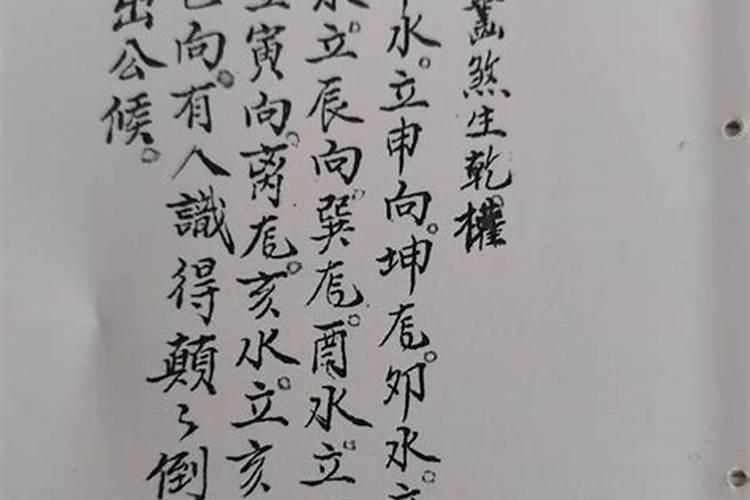 煞生乾權
水。立申向。坤龙。夘水。立
水。立辰向。巽龙。酉水。立
寅向。离龙。亥水。立亥
向。有人識得顛〻倒
出公候。